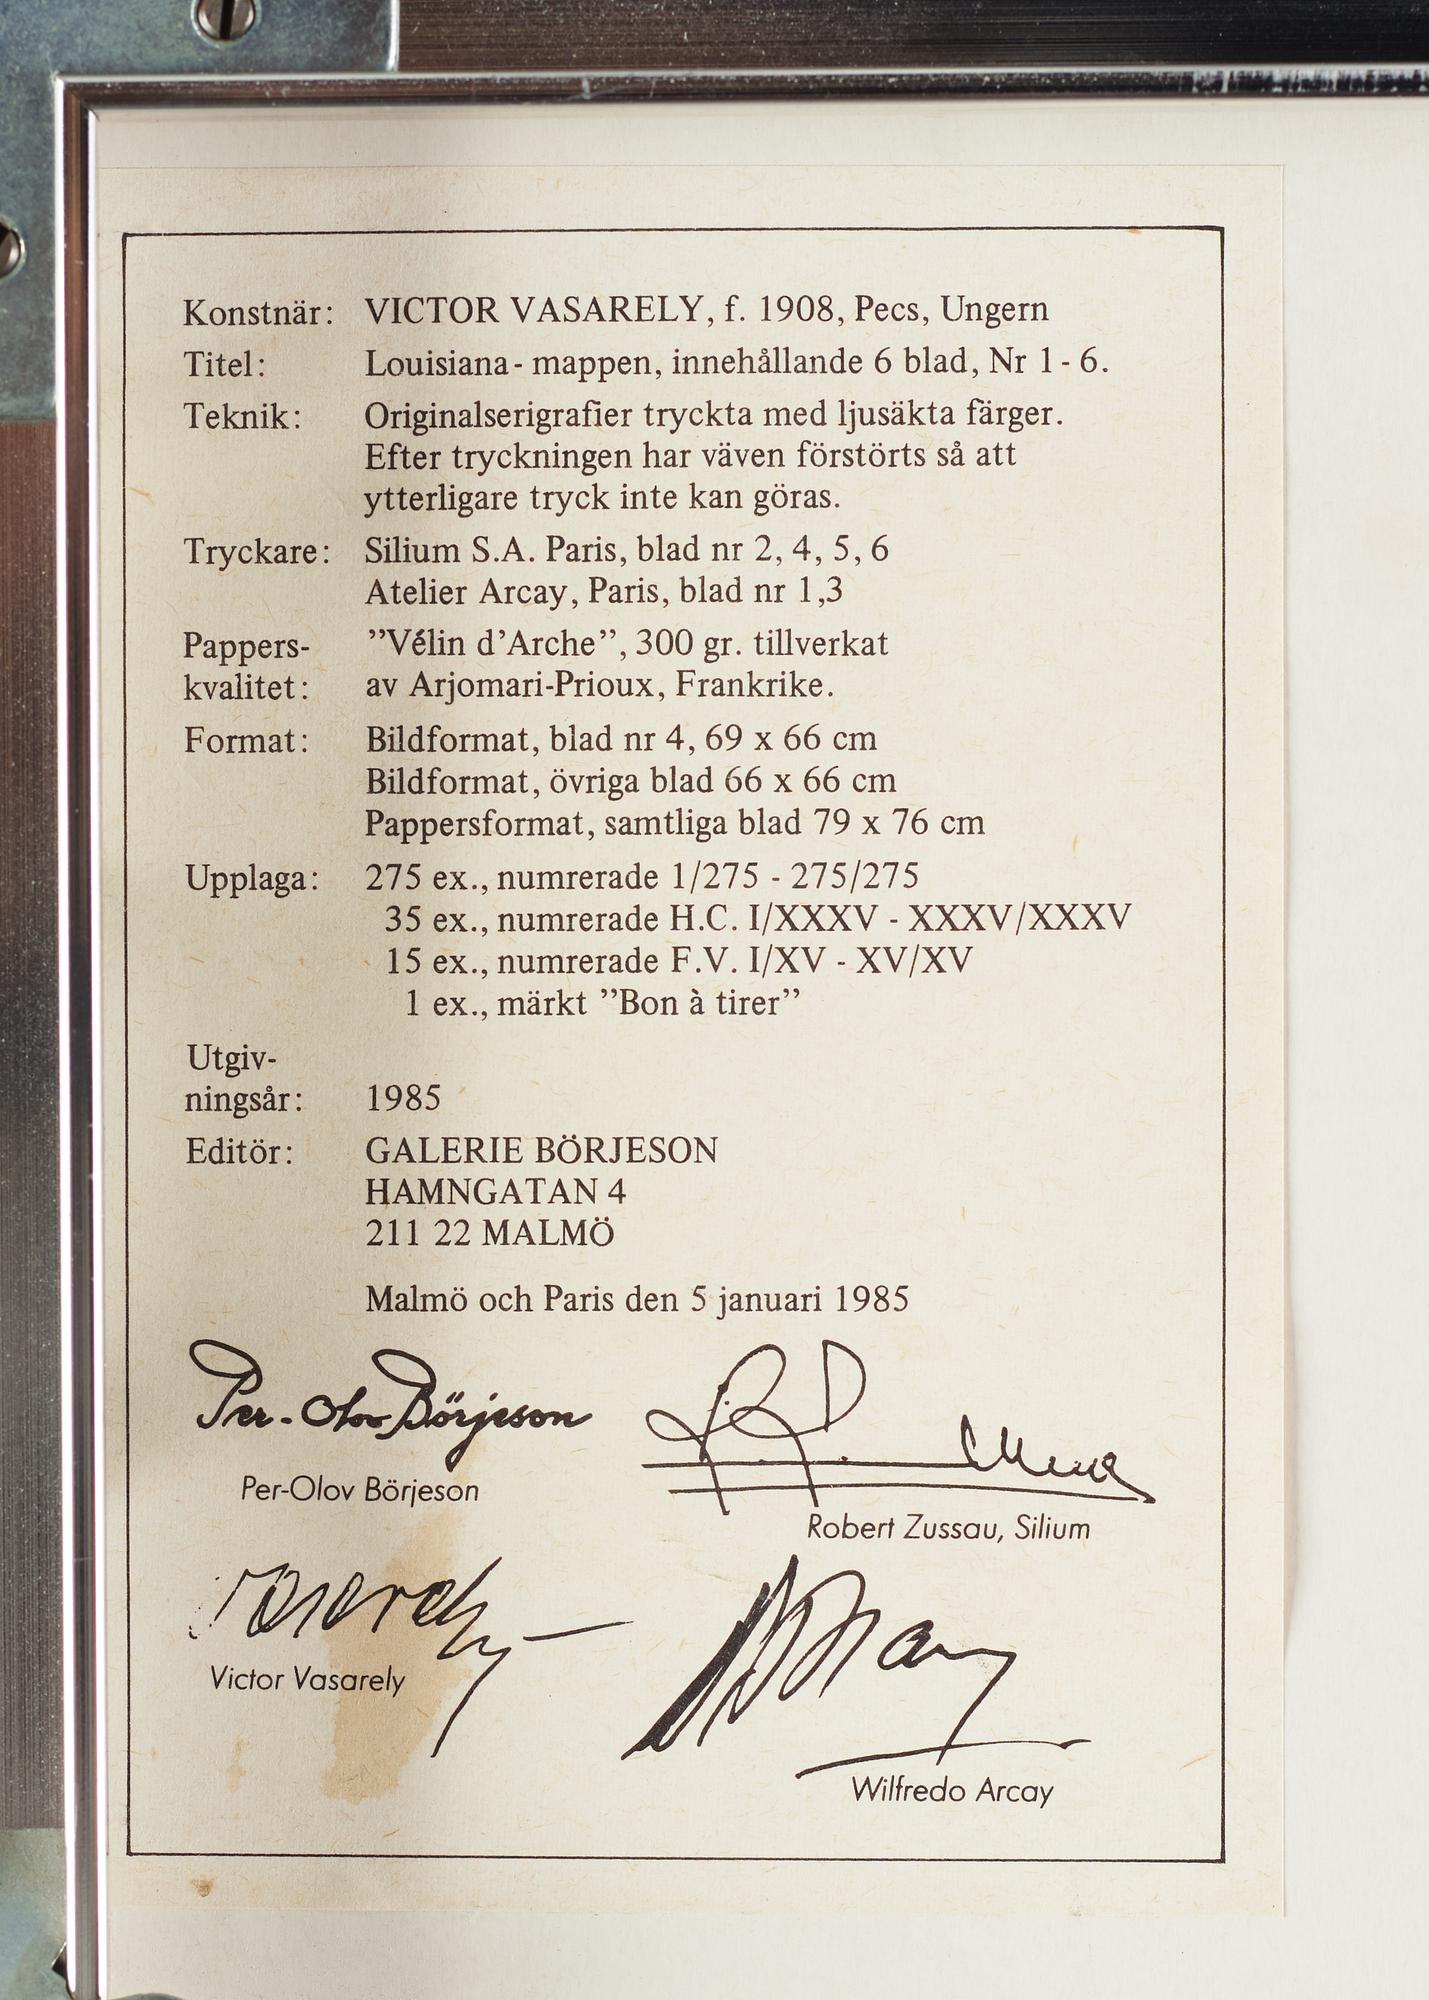 Konstnär: VICTOR VASARELY, f. 1908, Pecs, Ungern
Titel: Louisiana- mappen, innehållande 6 blad, Nr 1 - 6.
Teknik: Originalserigrafier tryckta med ljusäkta färger.
Efter tryckningen har väven förstörts så att
ytterligare tryck inte kan göras.
Tryckare: Silium S.A. Paris, blad nr 2, 4, 5, 6
Atelier Arcay, Paris, blad nr 1,3
Pappers- ”Vélin d’Arche”, 300 gr. tillverkat
kvalitet: av Arjomari-Prioux, Frankrike.
Format: Bildformat, blad nr 4, 69 x 66 cm
Bildformat, övriga blad 66 x 66 cm
Pappersformat, samtliga blad 79 x 76 cm
Upplaga: 275 ex., numrerade 1/275 - 275/275
35 ex., numrerade H.C. I/XXXV - XXXV/XXXV
15 ex., numrerade F.V. I/XV - XV/XV
1 ex., märkt ”Bon à tirer”
Utgiv-
ningsår: 1985
Editör: GALERIE BÖRJESON
HAMNGATAN 4
211 22 MALMÖ
Malmö och Paris den 5 januari 1985
Per-Olov Börjeson
Per-Olov Börjeson
Robert Zussau, Silium
Vasarely
Victor Vasarely
Arcay
Wilfredo Arcay